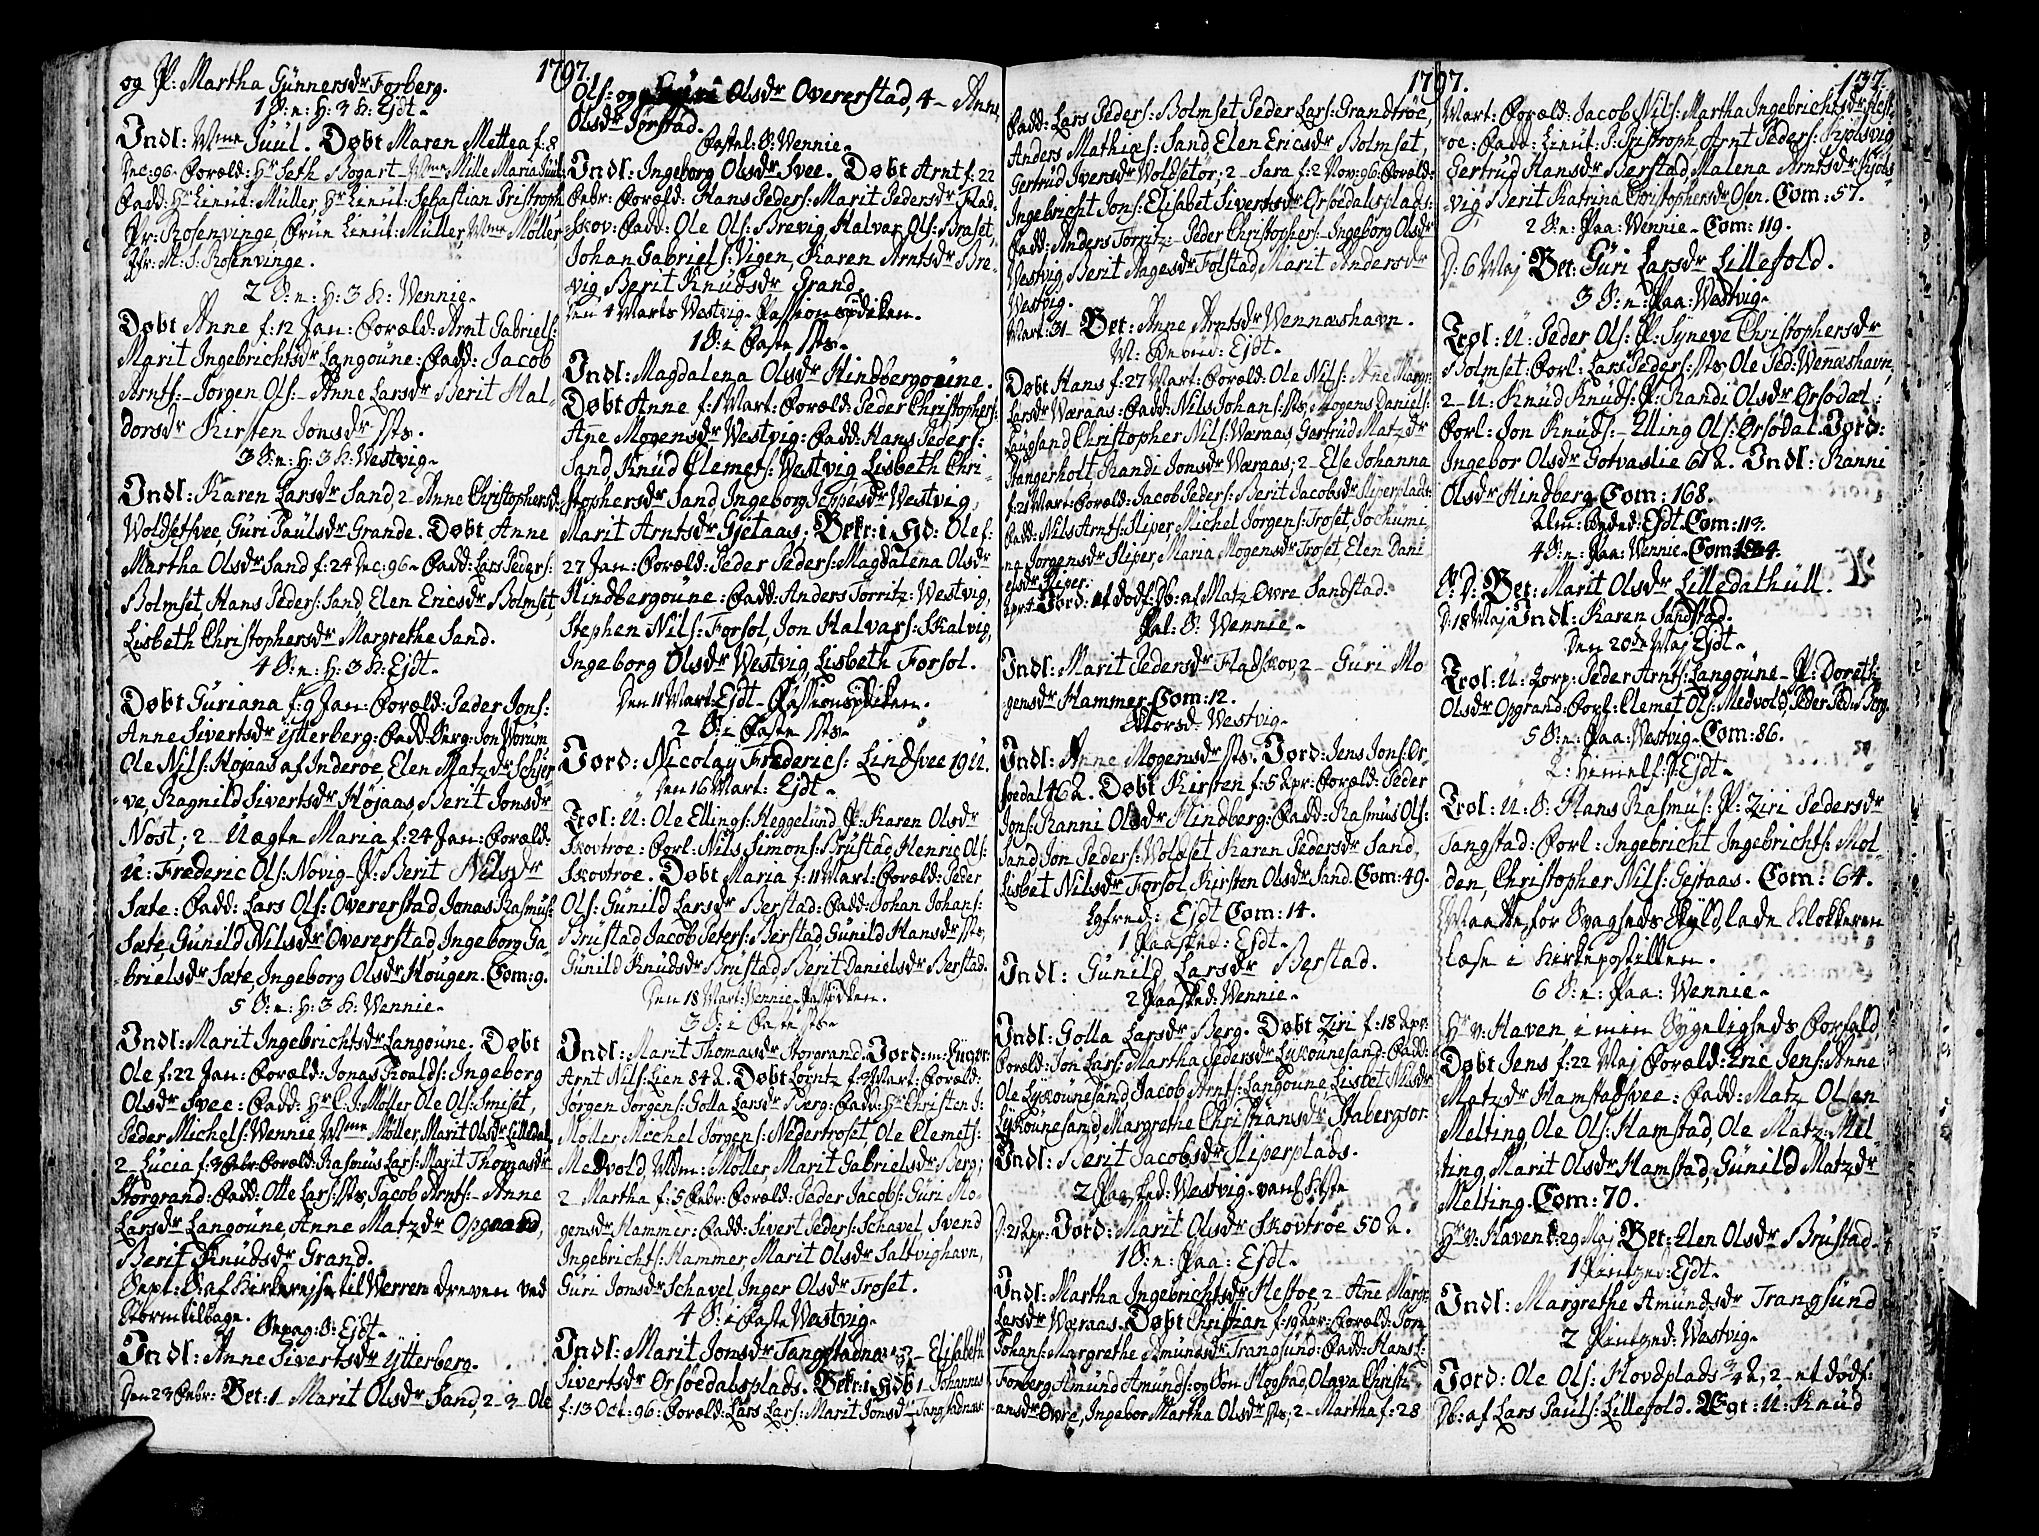 1797.
og P: Martha Gunnersdr Forberg.
1 S: n: H: 3 K: Ejdt.
Indl: Mme Juul. Døbt Maren Mettea f: 8
Dec: 96. Foræld: Hr Seth Bogart - Mme Mille Maria Juul
Fadd: Hr Lieut: Müller, Hr Lieut: Sebastian Pristroph
Pr: Rosenvinge, Frue Lieut: Müller Mme Møller
Jfr: M: S: Rosenvinge.
2 S: n: H: 3 K: Wennie.
Døbt Anne f: 12 Jan: Foræld: Arnt Gabriels:
Marit Ingebrichtsdr Langoune: Fadd: Jacob
Arnts: - Jørgen Ols: - Anne Larsdr Berit Hal-
dorsdr Kirsten Jonsdr sts.
3 S: n: H: 3 K: Westvig.
Indl: Karen Larsdr Sand, 2 - Anne Christophersdr
Woldsetsvee, Guri Paulsdr Grande. Døbt Anne
Martha Olsdr Sand f: 24 Dec: 96. Fadd: Lars Peders:
Bolmset Hans Peders: Sand Elen Ericsdr Bolmset,
Lisbeth Christophersdr Margrethe Sand.
4 S: n: H: 3 K: Ejdt.
Døbt Guriana f: 9 Jan: Foræld: Peder Jons:
Anne Sivertsdr Ytterberg: Fadd: Serg: Jon Worum
Ole Nils: Højaas af Inderøe, Elen Matzdr Schjer-
ve, Ragnild Sivertsdr Højaas, Berit Jonsdr
Nøst; 2 - Uægte Maria f: 24 Jan: Foræld:
U: Frederic Ols: Nøvig - P: Berit Nilsdr
Sæte: Fadd: Lars Ols: Overerstad Jonas Rasmus:
Sæte Gunild Nilsdr Overerstad, Ingeborg Ga-
brielsdr Sæte, Ingeborg Olsdr Hougen. Com: 9.
5 S: n: H: 3 K: Wennie.
Indl: Marit Ingebrichtsdr Langoune. Døbt
Ole f: 22 Jan: Foræld: Jonas Roalds: Ingeborg
Olsdr Svee: Fadd: Hr C: J: Møller Ole Ols: Smiset,
Peder Michels: Wennie Mme Møller, Marit Olsdr Lilledal,
2 - Lucia f: 3 Febr: Foræld: Rasmus Lars: Marit Thomasdr
Storgrand: Fadd: Otte Lars: sts, Jacob Arnts: - Anne
Larsdr Langoune, Anne Matzdr Opgaard,
Berit Knudsdr Grand.
Sept: S: af Kirkerejse til Werren dreven ved
Storm tilbage.
Sexag: S: Ejdt.
Indl: Anne Sivertsdr Ytterberg.
Den 23 Febr: Bet: 1 Marit Olsdr Sand, 2 - 3 - Ole
Ols: og Guri Olsdr Overerstad, 4 - Anne
Olsdr Jørstad.
Fastel: S: Wennie.
Indl: Ingeborg Olsdr Svee. Døbt Arnt f: 22
Febr: Foræld: Hans Peders: Marit Pedersdr Flad-
skov: Fadd: Ole Ols: Brevig, Halvar Ols: Braset,
Johan Gabriels: Vigen, Karen Arntsdr Bre-
vig, Berit Knudsdr Grand.
Den 4 Marts Westvig - Passionsprdiken.
1 S: i Faste sts.
Indl: Magdalena Olsdr Hindbergoune.
Døbt Anne f: 1 Mart: Foræld: Peder Christophers:
Anne Mogensdr Westvig: Fadd: Hans Peders:
Sand, Knud Clemets: Westvig Lisbeth Chri-
stophersdr Sand, Ingeborg Jeppesdr Westvig,
Marit Arntsdr Gjetaas; Bekr: i Hd: Ole f:
27 Jan: Foræld: Peder Peders: Magdalena Olsdr
Hindbergoune: Fadd: Anders Torritz: Westvig,
Stephen Nils: Forsol, Jon Halvars: Skalvig,
Ingeborg Olsdr Westvig, Lisbeth Forsol.
Den 11 Mart: Ejdt - Passionsprdiken.
2 S: i Faste sts.
Jord: Nicolay Frederics: Lindsvee 19 U.
Den 16 Mart: Ejdt.
Trol: U: Ole Ellings: Heggelund P: Karen Olsdr
Skovtroe: Forl: Nils Simons: Brustad, Henric Ols:
Skovtroe. Døbt Maria f: 11 Mart: Foræld: Peder
Ols: Gunild Larsdr Berstad: Fadd: Johan Johans:
Brustad, Jacob Peters: Berstad, Gunild Hansdr sts,
Gunild Knudsdr Brustad, Berit Danielsdr Berstad.
Den 18 Mart: Wennie -
3 S: i Faste sts.
Indl: Marit Thomasdr Storgrand. Jord: m:
Arnt Nils: Lien 84 A. Døbt Lorntz f: 3 Mart: Foræld:
Jørgen Jørgens: Golla Larsdr Berg: Fadd: Hr Christen J:
Møller Michel Jørgens: Nedertroset, Ole Clemets:
Medvold, Mdm: Møller, Marit Gabrielsdr Berg;
2 - Martha f: 5 Febr: Foræld: Peder Jacobs: Guri Mo-
gensdr Hammer: Fadd: Sivert Peders: Schavel Svend
Ingebrichts: Hammer, Marit Olsdr Saltvighavn,
Guri Jonsdr Schavel Inger Olsdr Troset.
4 S: i Faste Westvig.
Indl: Marit Jonsdr Tangstadnæs, 2 - Elisabeth
Sivertsdr Orsøedalsplads. Bekr: i Hd: 1 - Johannes
f: 13 Oct: 96: Foræld: Lars Lars: Marit Jonsdr Tangstadnæs:
1797.
Fadd: Lars Peders: Bolmset Peder Lars: Grandtroe,
Anders Mathias: Sand Elen Ericsdr Bolmset,
Gertrud Ivensdr Woldsetør; 2 - Sara f: 2 Nov: 96: Foræld:
Ingebricht Jons: Elisabet Sivertsdr Orsøedalsplads:
Fadd: Anders Torritz: - Peder Christophers: - Ingeborg Olsdr
Westvig, Berit Aagesdr Folstad, Marit Andersdr
Westvig.
Mart: 31 - Bet: Anne Arntsdr Wennæshavn.
M: Ejdt.
Døbt Hans f: 27 Mart: Foræld: Ole Nils: Anne Margr:
Larsdr Væraas: Fadd: Nils Johans: sts, Mogens Daniels:
Langsand, Christopher Nils: Væraas, Gertrud Matzdr
Stangerholt, Randi Jonsdr Væraas; 2 - Else Johanna
f: 21 Mart: Foræld: Jacob Peders: Berit Jacobsdr Hiperplads:
Fadd: Nils Arnts: Hiper, Michel Jørgens: Troset, Jochumi-
na Jørgensdr Hiper, Maria Mogensdr Troset, Elen Dani-
elsdr Hiper.
Jord: et dødf: Db: af Matz Ovre Sandstad.
Pal: S: Wennie.
Indl: Marit Pedersdr Fladskov, 2 - Guri Mo-
gensdr Hammer. Com: 12.
Skiørsd: Westvig.
Indl: Anne Mogensdr sts. Jord: Jens Jons: Or-
søedal 46 A. Døbt Kirsten f: 5 Apr: Foræld: Peder
Jons: Ranni Olsdr Hindberg: Fadd: Rasmus Ols:
Sand Jon Peders: Woldset Karen Pedersdr Sand,
Lisbet Nilsdr Forsol, Kirsten Olsdr Sand. Com: 49.
Lgfred: Ejdt Com: 14.
1 Paasked: Ejdt.
Indl: Gunild Larsdr Berstad.
2 Paasked: Wennie.
Indl: Golla Larsdr Berg. Døbt Ziri f: 18 Apr:
Foræld: Jon Lars: Martha Pedersdr Lykounesand: Fadd:
Ole Lykounesand, Jacob Arnts: Langoune, Lisbet Nilsdr
Lykounesand, Margrethe Christiansdr Stabergsør
Indl: Berit Jacobsdr Hiperplads.
2 Paasked: Westvig -
D: 21 Apr: Jord: Marit Olsdr Skovtroe 50 A.
1 S: n: Paa: Ejdt.
Indl: Martha Ingebrichtsdr Hestøe 2 - Anne Margr:
Larsdr Væraas. Døbt Christian f: 19 Apr: Foræld: Jon
Johans: Margrethe Amundsdr Trangsund: Fadd: Hans J:
Forberg Amund Amunds: og Søn Hogstad, Olava Christi-
ansdr Ovre, Ingebor Martha Olsdr sts; 2 - Martha f: 28
137.
Mart: Foræld: Jacob Nils: Martha Ingebrichtsdr Hest-
øe: Fadd: Lieut: Pristroph Arnt Peders: Kjølsvig
Gertrud Hansdr Berstad, Malena Arntsdr Kjøls-
vig Berit Katrina Christophersdr Osen. Com: 57.
2 S: n: Paa: Wennie - Com: 119.
D: 6 Maj Bet: Guri Larsdr Lillefold.
3 S: n: Paa: Westvig.
Trol: U: Peder Ols: P: Syneve Christophersdr
Bolmset: Forl: Lars Peders: sts Ole Ped: Wennæshavn,
2 - U: Knud Knuds: P: Randi Olsdr Orsødal:
Forl: Jon Knuds: - Elling Ols: Orsødal. Jord:
Ingebor Olsdr Gotvaslie 61 A. Indl: Ranni
Olsdr Hindberg. Com: 168.
Alm: Beded: Ejdt. Com: 113.
4 S: n: Paa: Wennie - Com:
S: D: Bet: Marit Olsdr Lilledathull.
D: 18 Maj Indl: Karen Sandstad.
Den 20de Maj Ejdt.
Trol: U: Corp: Peder Arnts: Langoune - P: Doreth:
Olsdr Opgrand: Forl: Clemet Ols: Medvold, Peder Ped: Berg.
5 S: n: Paa: Westvig - Com: 86.
C: Himelf: Ejdt.
Trol: U: S: Hans Rasmus: P: Ziri Pedersdr
Tangstad: Forl: Ingebricht Ingebrichts: Mol-
den, Christopher Nils: Gejtaas. Com: 64.
Maatte for Svagheds Skyld lade Klokkeren
læse i Kirkepostillen.
6 S: n: Paa: Wennie.
Hr v: Haven, i min Sygeligheds Forfald,
Døbt Jens f: 22 Maj Foræld: Eric Jens: Anne
Matzdr Hamstadsvee: Fadd: Matz Olsen
Melting, Ole Ols: Hamstad, Ole Matz: Mel-
ting, Marit Olsdr Hamstad, Gunild Matzdr
Melting. Com: 70.
Hr v: Haven d: 29 Maj Bet: Elen Olsdr Brustad.
1 Pintzed: Ejdt.
Indl: Margrethe Amundsdr Trangsund
2 Pintzed: Westvig.
Jord: Ole Ols: Hovdplads 3/4 A, 2 - et dødf:
Db: af Lars Pauls: Lillefold. Ægt: U: Knud